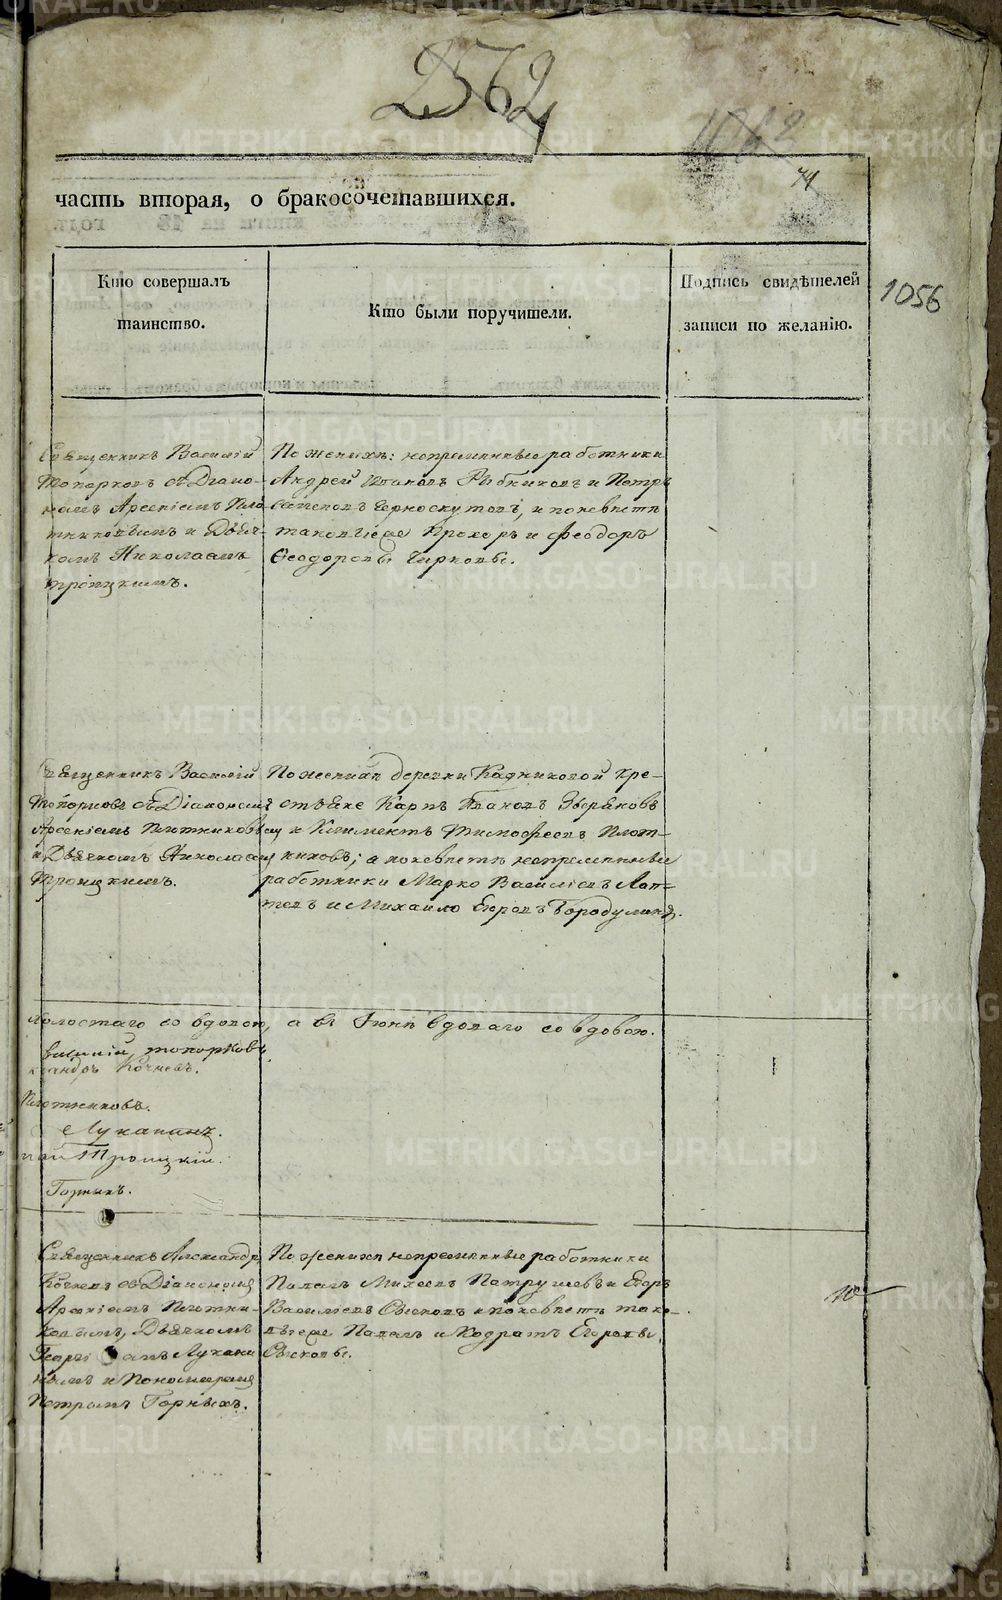 2562
1062
71
часть вторая, о бракосочетавшихся.
1056
Кто совершалъ
таинство.
Кто были поручители.
Подпись свидѣтелей
записи по желанію.
Священникъ Василій
Топорковъ съ Діако-
номъ Арсеніемъ Пло
тниковымъ и Дьяч-
комъ Николаемъ
Троицкимъ.
По женихѣ: непремѣнные работники
Андрей Яковлевъ Рыбниковъ и Петръ
Черноскутовъ, и по невѣстѣ
таковыеже Прохоръ и Феодоръ
Ѳеодоровы Чирковы.
Священникъ Василій
Топорковъ съ Діакономъ
Арсеніемъ Плотниковымъ
и Дьячкомъ Николаемъ
Троицкимъ.
По женихѣ деревни Кадниковой кре-
стьяне Карпъ Яковлевъ Звѣряковъ
и Климентъ Тимофеевъ Плот-
никовъ; а по невѣстѣ непремѣнные
работники Марко Василіевъ Лап-
тевъ и Михайло Егоровъ Бородулинъ.
холостаго со вдовою, а въ Іюнѣ вдоваго со вдовою.
Василій Топорковъ
ксандръ Кочневъ.
Плотниковъ.
Луканинъ.
лай Троицкій.
Горныхъ.
Священникъ Александръ
Кочневъ съ Діакономъ
Арсеніемъ Плотни-
ковымъ, Дьячкомъ
Луканин
нымъ и Пономаремъ
Петромъ Горныхъ.
По женихѣ непремѣнные работники
Павелъ Михеевъ Петрушевъ и Егоръ
Василіевъ Сысковъ и по невѣстѣ тако-
выеже Павелъ и Кодратъ Егоровы
Сысковы.
METRIKI.GASO-URAL.RU